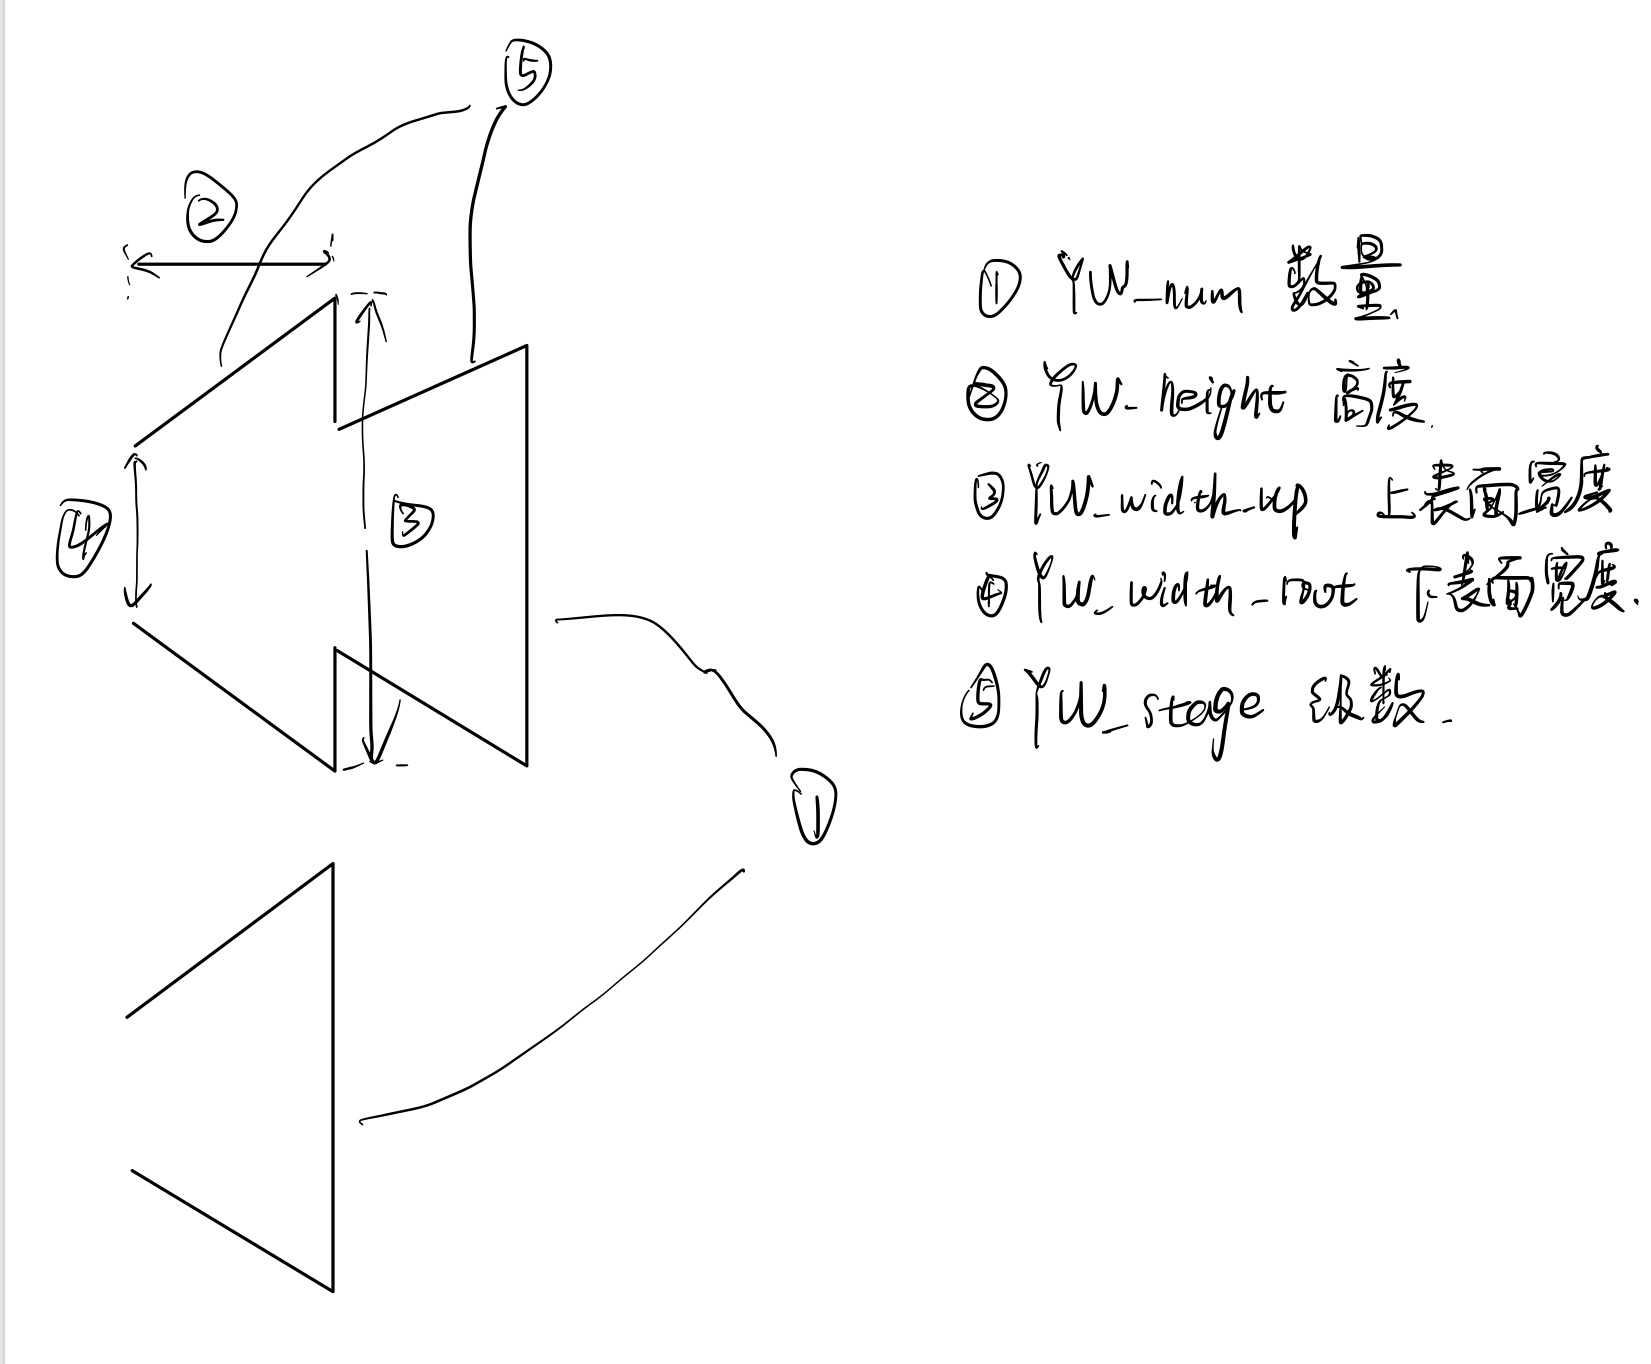 ⑤
②
④
③
①
① YW_num 数量
② YW_height 高度.
③ YW_width_up 上表面宽度
④ YW_width_root 下表面宽度.
⑤ YW_stage 级数.